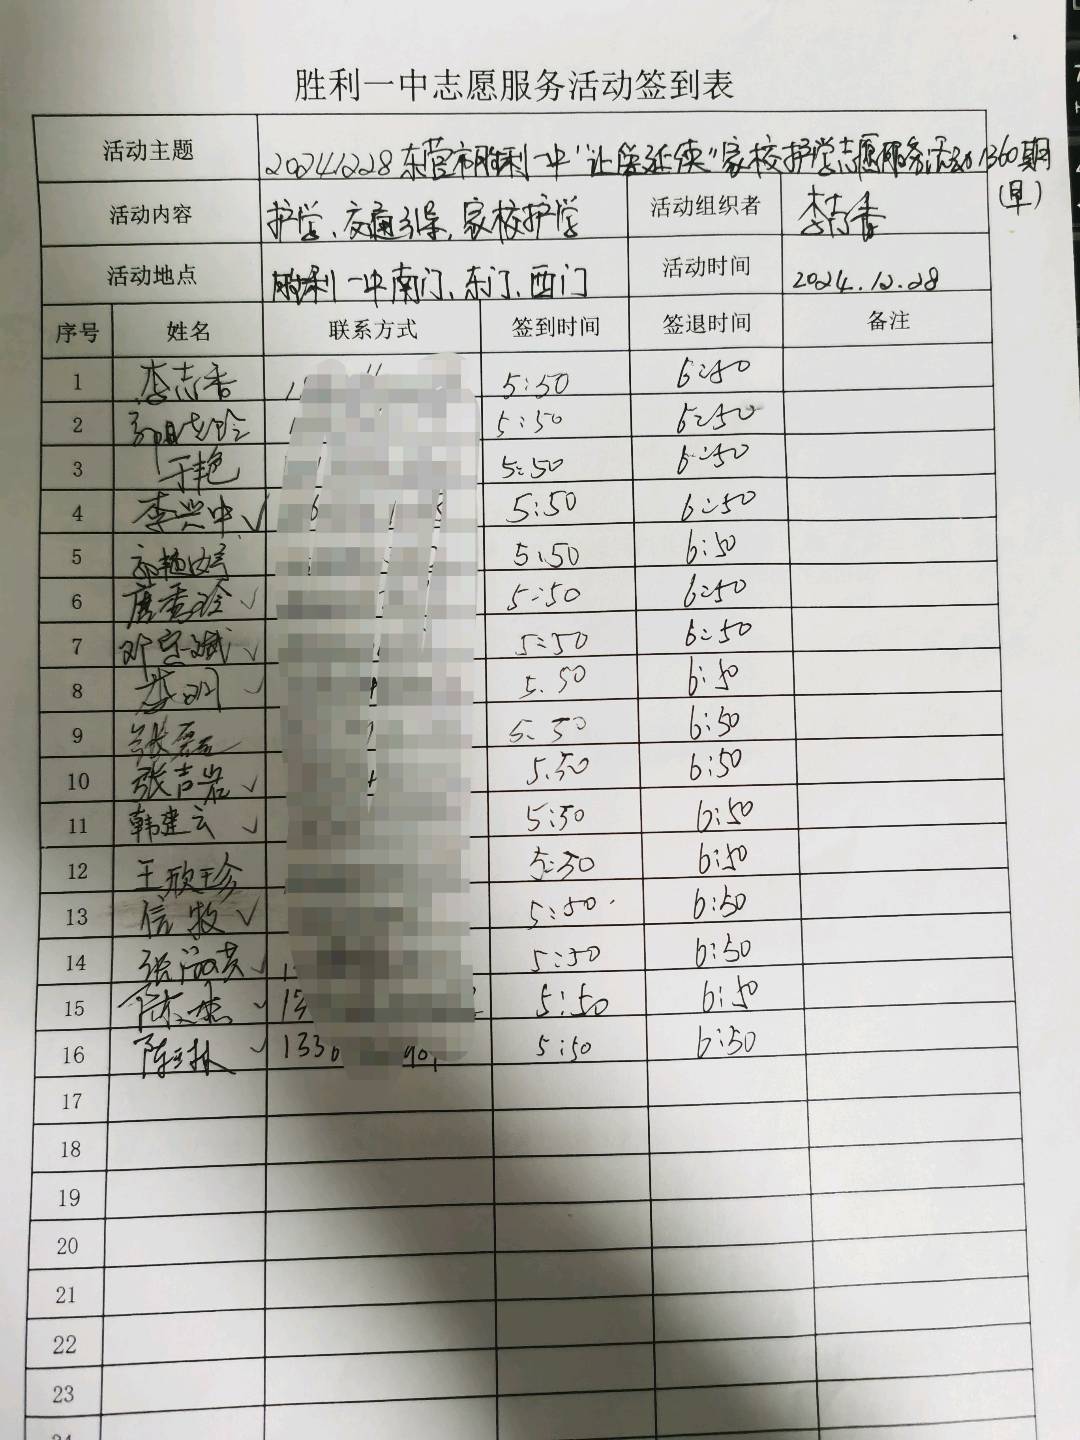 胜利一中志愿服务活动签到表
活动主题 20241228东营市胜利一中"让学延续"家校护学志愿服务活动1360期(早)
活动内容 护学、交通引导、家校护学 活动组织者 李志香
活动地点 胜利一中南门、东门、西门 活动时间 2024.12.28
序号 姓名 联系方式 签到时间 签退时间 备注
1 李志香 5:50 6:50
2 5:50 6:50
3 于艳 5:50 6:50
4 李兴中 ✓ 5:50 6:50
5 5:50 6:50
6 唐香玲 ✓ 5:50 6:50
7 邓宗斌 ✓ 5:50 6:50
8 ✓ 5.50 6:50
9 张磊 5:50 6:50
10 张吉岩 ✓ 5.50 6:50
11 韩建云 ✓ 5:50 6:50
12 王欣珍 5:50 6:50
13 信牧 ✓ 5:50 6:50
14 张淑英 ✓ 5:50 6:50
15 ✓ 15 5:50 6:50
16 ✓ 133 90 5:50 6:50
17
18
19
20
21
22
23